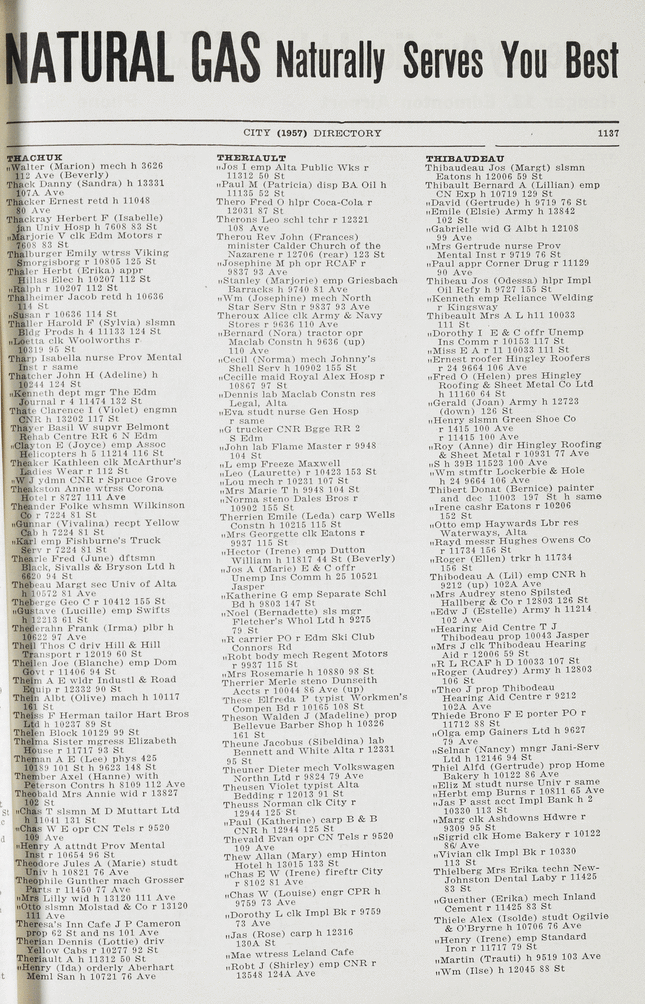 NATURAL GAS Naturally Serves You Best
CITY (1957) DIRECTORY 1137
THACHUK
„Walter (Marion) mech h 3626
112 Ave (Beverly)
Thack Danny (Sandra) h 13331
107A Ave
Thacker Ernest retd h 11048
80 Ave
Thackray Herbert F (Isabelle)
jan Univ Hosp h 7608 83 St
„Marjorie V clk Edm Motors r
7608 83 St
Thalburger Emily wtrss Viking
Smorgisborg r 10805 125 St
Thaler Herbt (Erika) appr
Hillas Elec h 10207 112 St
„Ralph r 10207 112 St
Thalheimer Jacob retd h 10636
114 St
„Susan r 10636 114 St
Thaller Harold F (Sylvia) slsmn
Bldg Prods h 4 11133 124 St
„Loetta clk Woolworths r
10319 95 St
Tharp Isabella nurse Prov Mental
Inst r same
Thatcher John H (Adeline) h
10244 124 St
„Kenneth dept mgr The Edm
Journal r 4 11474 132 St
Thate Clarence I (Violet) engmn
CNR h 13202 117 St
Thayer Basil W supvr Belmont
Rehab Centre RR 6 N Edm
„Clayton E (Joyce) emp Assoc
Helicopters h 5 11214 116 St
Theaker Kathleen clk McArthur's
Ladies Wear r 112 St
„W J ydmn CNR r Spruce Grove
Theakston Anne wtrss Corona
Hotel r 8727 111 Ave
Theander Folke whsmn Wilkinson
Co r 7224 81 St
„Gunnar (Vivalina) recpt Yellow
Cab h 7224 81 St
„Karl emp Fishburne's Truck
Serv r 7224 81 St
Thearle Fred (June) dftsmn
Black, Sivalls & Bryson Ltd h
6620 94 St
Thebeau Margt sec Univ of Alta
h 10572 81 Ave
Theberge Geo C r 10412 155 St
„Gustave (Lucille) emp Swifts
h 12213 61 St
Thederahn Frank (Irma) plbr h
10622 97 Ave
Thell Thos C driv Hill & Hill
Transport r 12019 60 St
Thellen Joe (Blanche) emp Dom
Govt r 11406 94 St
Theim A E wldr Industl & Road
Equip r 12332 90 St
Thein Albt (Olive) mach h 10117
161 St
Theiss F Herman tailor Hart Bros
Ltd h 10237 89 St
Thelen Block 10129 99 St
Thelma Sister mgress Elizabeth
House r 11717 93 St
Theman A E (Lee) phys 425
10189 101 St h 9623 148 St
Thember Axel (Hanne) with
Peterson Contrs h 8109 112 Ave
Theobald Mrs Annie wid r 13827
102 St
„Chas T slsmn M D Muttart Ltd
h 11041 131 St
„Chas W E opr CN Tels r 9520
109 Ave
„Henry A attndt Prov Mental
Inst r 10654 96 St
Theodore Jules A (Marie) studt
Univ h 10821 76 Ave
Theophile Gunther mach Grosser
Parts r 11450 77 Ave
„Mrs Lilly wid h 13120 111 Ave
„Otto slsmn Molstad & Co r 13120
111 Ave
Theresa's Inn Cafe J P Cameron
prop 62 St and ns 101 Ave
Therian Dennis (Lottie) driv
Yellow Cabs r 10277 92 St
Theriault A h 11312 50 St
„Henry (Ida) orderly Aberhart
Meml San h 10721 76 Ave
THERIAULT
„Jos I emp Alta Public Wks r
11312 50 St
„Paul M (Patricia) disp BA Oil h
11135 52 St
Thero Fred O hlpr Coca-Cola r
12031 87 St
Therons Leo schl tchr r 12321
108 Ave
Therou Rev John (Frances)
minister Calder Church of the
Nazarene r 12706 (rear) 123 St
„Josephine M ph opr RCAF r
9837 93 Ave
„Stanley (Marjorie) emp Griesbach
Barracks h 9740 81 Ave
„Wm (Josephine) mech North
Star Serv Stn r 9837 93 Ave
Theroux Alice clk Army & Navy
Stores r 9636 110 Ave
„Bernard (Nora) tractor opr
Maclab Constn h 9636 (up)
110 Ave
„Cecil (Norma) mech Johnny's
Shell Serv h 10902 155 St
„Cecille maid Royal Alex Hosp r
10867 97 St
„Dennis lab Maclab Constn res
Legal, Alta
„Eva studt nurse Gen Hosp
r same
„G trucker CNR Bgge RR 2
S Edm
„John lab Flame Master r 9948
104 St
„L emp Freeze Maxwell
„Leo (Laurette) r 10423 153 St
„Lou mech r 10231 107 St
„Mrs Marie T h 9948 104 St
„Norma steno Dales Bros r
10902 155 St
Therrien Emile (Leda) carp Wells
Constn h 10215 115 St
„Mrs Georgette clk Eatons r
9937 115 St
„Hector (Irene) emp Dutton
William h 11817 44 St (Beverly)
„Jos A (Marie) E & C offr
Unemp Ins Comm h 25 10521
Jasper
„Katherine G emp Separate Schl
Bd h 9803 147 St
„Noel (Bernadette) sls mgr
Fletcher's Whol Ltd h 9275
79 St
„R carrier PO r Edm Ski Club
Connors Rd
„Robt body mech Regent Motors
r 9937 115 St
„Mrs Rosemarie h 10880 98 St
Therrier Merle steno Dunseith
Accts r 10044 86 Ave (up)
These Elfreda P typist Workmen's
Compen Bd r 10165 108 St
Theson Walden J (Madeline) prop
Bellevue Barber Shop h 10326
161 St
Theune Jacobus (Sibeldina) lab
Bennett and White Alta r 12331
95 St
Theuner Dieter mech Volkswagen
Northn Ltd r 9824 79 Ave
Theusen Violet typist Alta
Bedding r 12013 91 St
Theuss Norman clk City r
12944 125 St
„Paul (Katherine) carp B & B
CNR h 12944 125 St
Thevald Evan opr CN Tels r 9520
109 Ave
Thew Allan (Mary) emp Hinton
Hotel h 13015 133 St
„Chas E W (Irene) fireftr City
r 8102 81 Ave
„Chas W (Louise) engr CPR h
9759 73 Ave
„Dorothy L clk Impl Bk r 9759
73 Ave
„Jas (Rose) carp h 12316
130A St
„Mae wtress Leland Cafe
„Robt J (Shirley) emp CNR r
13548 124A Ave
THIBAUDEAU
Thibaudeau Jos (Margt) slsmn
Eatons h 12006 59 St
Thibault Bernard A (Lillian) emp
CN Exp h 10719 129 St
„David (Gertrude) h 9719 76 St
„Emile (Elsie) Army h 13842
102 St
„Gabrielle wid G Albt h 12108
99 Ave
„Mrs Gertrude nurse Prov
Mental Inst r 9719 76 St
„Paul appr Corner Drug r 11129
90 Ave
Thibeau Jos (Odessa) hlpr Impl
Oil Refy h 9727 155 St
„Kenneth emp Reliance Welding
r Kingsway
Thibeault Mrs A L h11 10033
111 St
„Dorothy I E & C offr Unemp
Ins Comm r 10153 117 St
„Miss E A r 11 10033 111 St
„Ernest roofer Hingley Roofers
r 24 9664 106 Ave
„Fred O (Helen) pres Hingley
Roofing & Sheet Metal Co Ltd
h 11160 64 St
„Gerald (Joan) Army h 12723
(down) 126 St
„Henry slsmn Green Shoe Co
r 1415 100 Ave
r 11415 100 Ave
„Roy (Anne) dir Hingley Roofing
& Sheet Metal r 10931 77 Ave
„S h 39B 11523 100 Ave
„Wm stmftr Lockerbie & Hole
h 24 9664 106 Ave
Thibert Donat (Bernice) painter
and dec 11003 197 St h same
„Irene cashr Eatons r 10206
152 St
„Otto emp Haywards Lbr res
Waterways, Alta
„Rayd messr Hughes Owens Co
r 11734 156 St
„Roger (Ellen) trkr h 11734
156 St
Thibodeau A (Lil) emp CNR h
9212 (up) 102A Ave
„Mrs Audrey steno Spilsted
Hallberg & Co r 12803 126 St
„Edw J (Estelle) Army h 11214
102 Ave
„Hearing Aid Centre T J
Thibodeau prop 10043 Jasper
„Mrs J clk Thibodeau Hearing
Aid r 12006 59 St
„R L RCAF h D 10033 107 St
„Roger (Audrey) Army h 12803
106 St
„Theo J prop Thibodeau
Hearing Aid Centre r 9212
102A Ave
Thiede Brono F E porter PO r
11712 88 St
„Olga emp Gainers Ltd h 9627
79 Ave
„Selnar (Nancy) mngr Jani-Serv
Ltd h 12146 94 St
Thiel Alfd (Gertrude) prop Home
Bakery h 10122 86 Ave
„Eliz M studt nurse Univ r same
„Herbt emp Burns r 10811 65 Ave
„Jas P asst acct Impl Bank h 2
10330 113 St
„Marg clk Ashdowns Hdwre r
9309 95 St
„Sigrid clk Home Bakery r 10122
86/ Ave
„Vivian clk Impl Bk r 10330
113 St
Thielberg Mrs Erika techn New-
Johnston Dental Laby r 11425
83 St
„Guenther (Erika) mech Inland
Cement r 11425 83 St
Thiele Alex (Isolde) studt Ogilvie
& O'Bryrne h 10706 76 Ave
„Henry (Irene) emp Standard
Iron r 11717 79 St
„Martin (Trauti) h 9519 103 Ave
„Wm (Ilse) h 12045 88 St